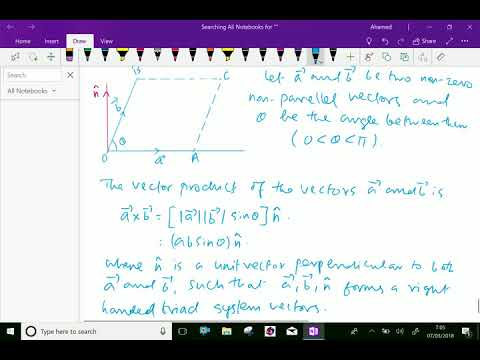 Searching All Notebooks for ""
Ahamed
File
Home
Insert
Draw
View
Search
All Notebooks
B
C
n̂
b⃗
θ
O
a⃗
A
Let a⃗ and b⃗ be two non-zero
non-parellel vectors and
θ be the angle between them
(0<θ<π).
The vector product of the vectors a⃗ and b⃗ is
a⃗×b⃗ = [|a⃗||b⃗| sinθ] n̂.
: (ab sinθ) n̂
where n̂ is a unit vector perpendicular to both
a⃗ and b⃗, such that a⃗, b⃗, n̂ forms a right
handed triad system vectors.
Type here to search
7:05
07/03/2018